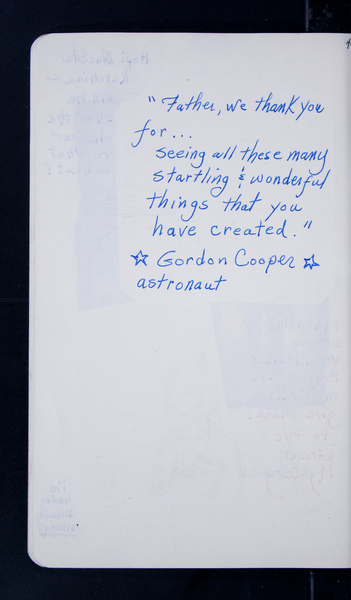 "Father, we thank you
for...
seeing all these many
startling & wonderful
things that you
have created."
☆ Gordon Cooper ☆
astronaut